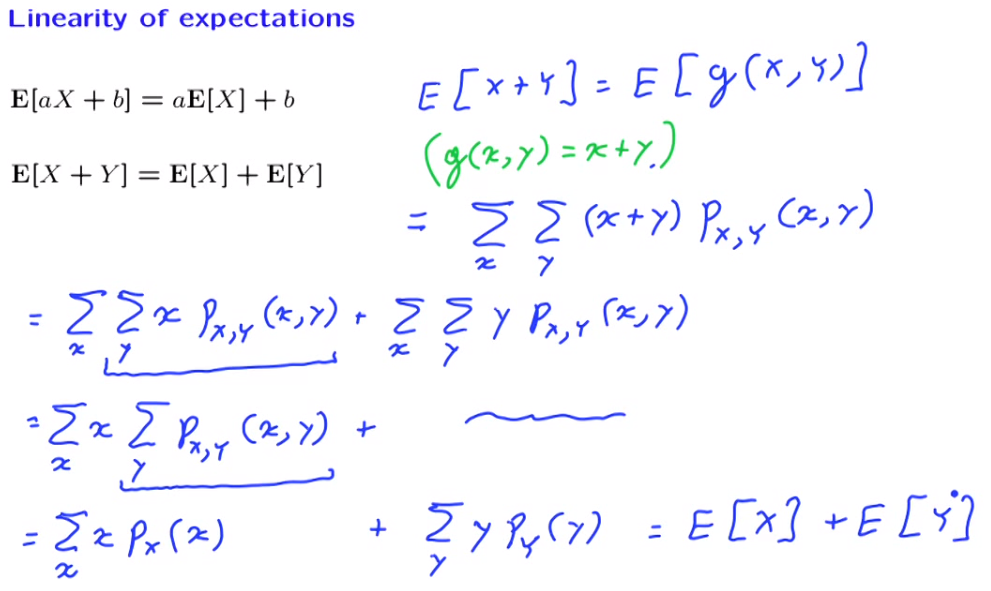 Linearity of expectations
E[aX + b] = aE[X] + b
E[X + Y] = E[X] + E[Y]
E[X+Y] = E[g(X,Y)]
(g(x,y) = x+y.)
= Σ_x Σ_y (x+y) P_{X,Y}(x,y)
= Σ_x Σ_y x P_{X,Y}(x,y) + Σ_x Σ_y y P_{X,Y}(x,y)
= Σ_x x Σ_y P_{X,Y}(x,y) +
= Σ_x x P_X(x) + Σ_y y P_Y(y) = E[X] + E[Y]